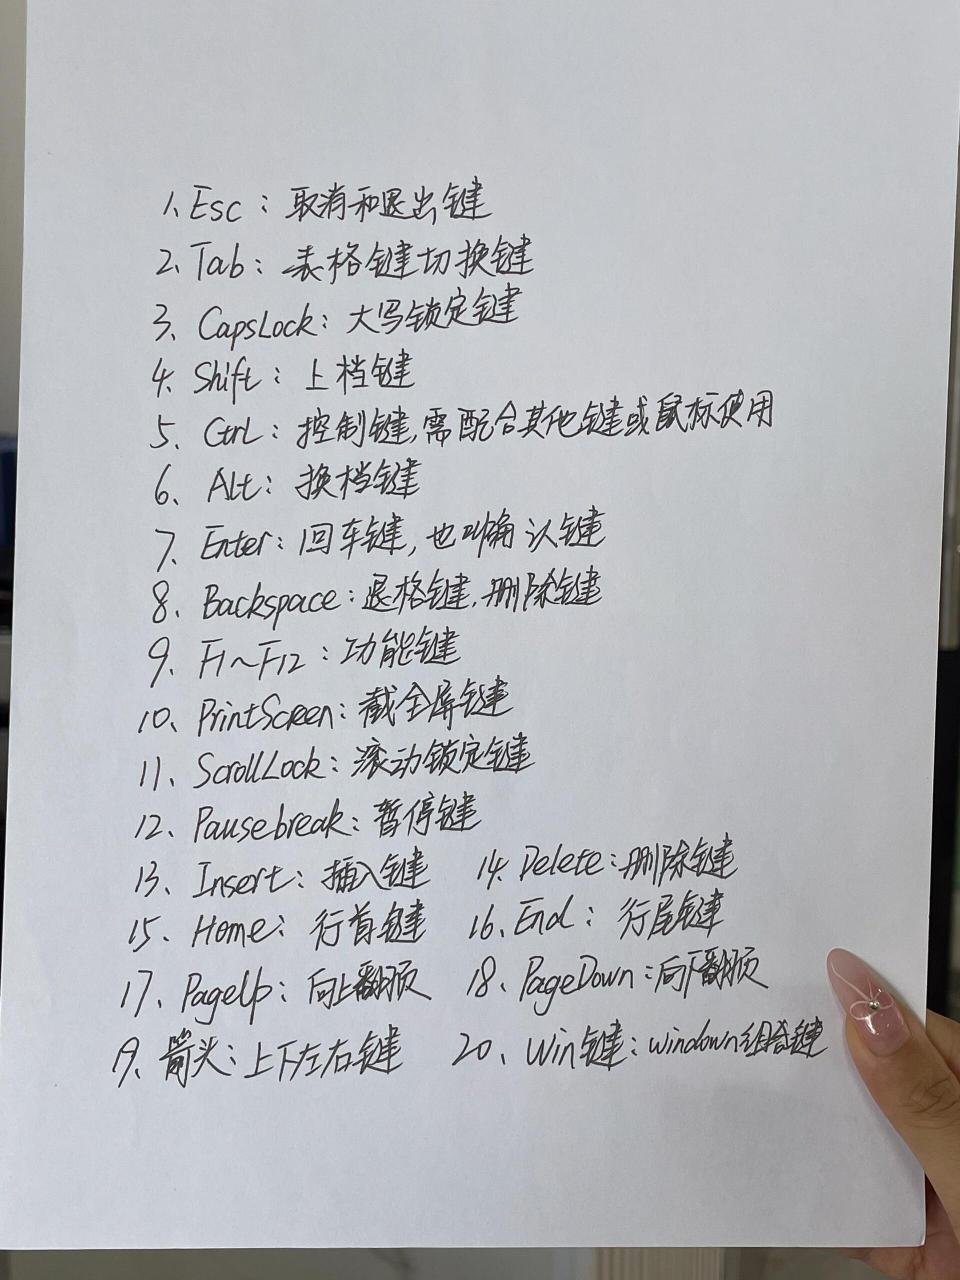 1、Esc：取消和退出键
2、Tab：表格键切换键
3、CapsLock：大写锁定键
4、Shift：上档键
5、Ctrl：控制键,需配合其他键或鼠标使用
6、Alt：换档键
7、Enter：回车键,也叫确认键
8、Backspace：退格键,删除键
9、F1～F12：功能键
10、PrintScreen：截全屏键
11、ScrollLock：滚动锁定键
12、Pausebreak：暂停键
13、Insert：插入键 14、Delete：删除键
15、Home：行首键 16、End：行尾键
17、PageUp：向上翻页 18、PageDown：向下翻页
19、箭头：上下左右键 20、Win键：windown组合键